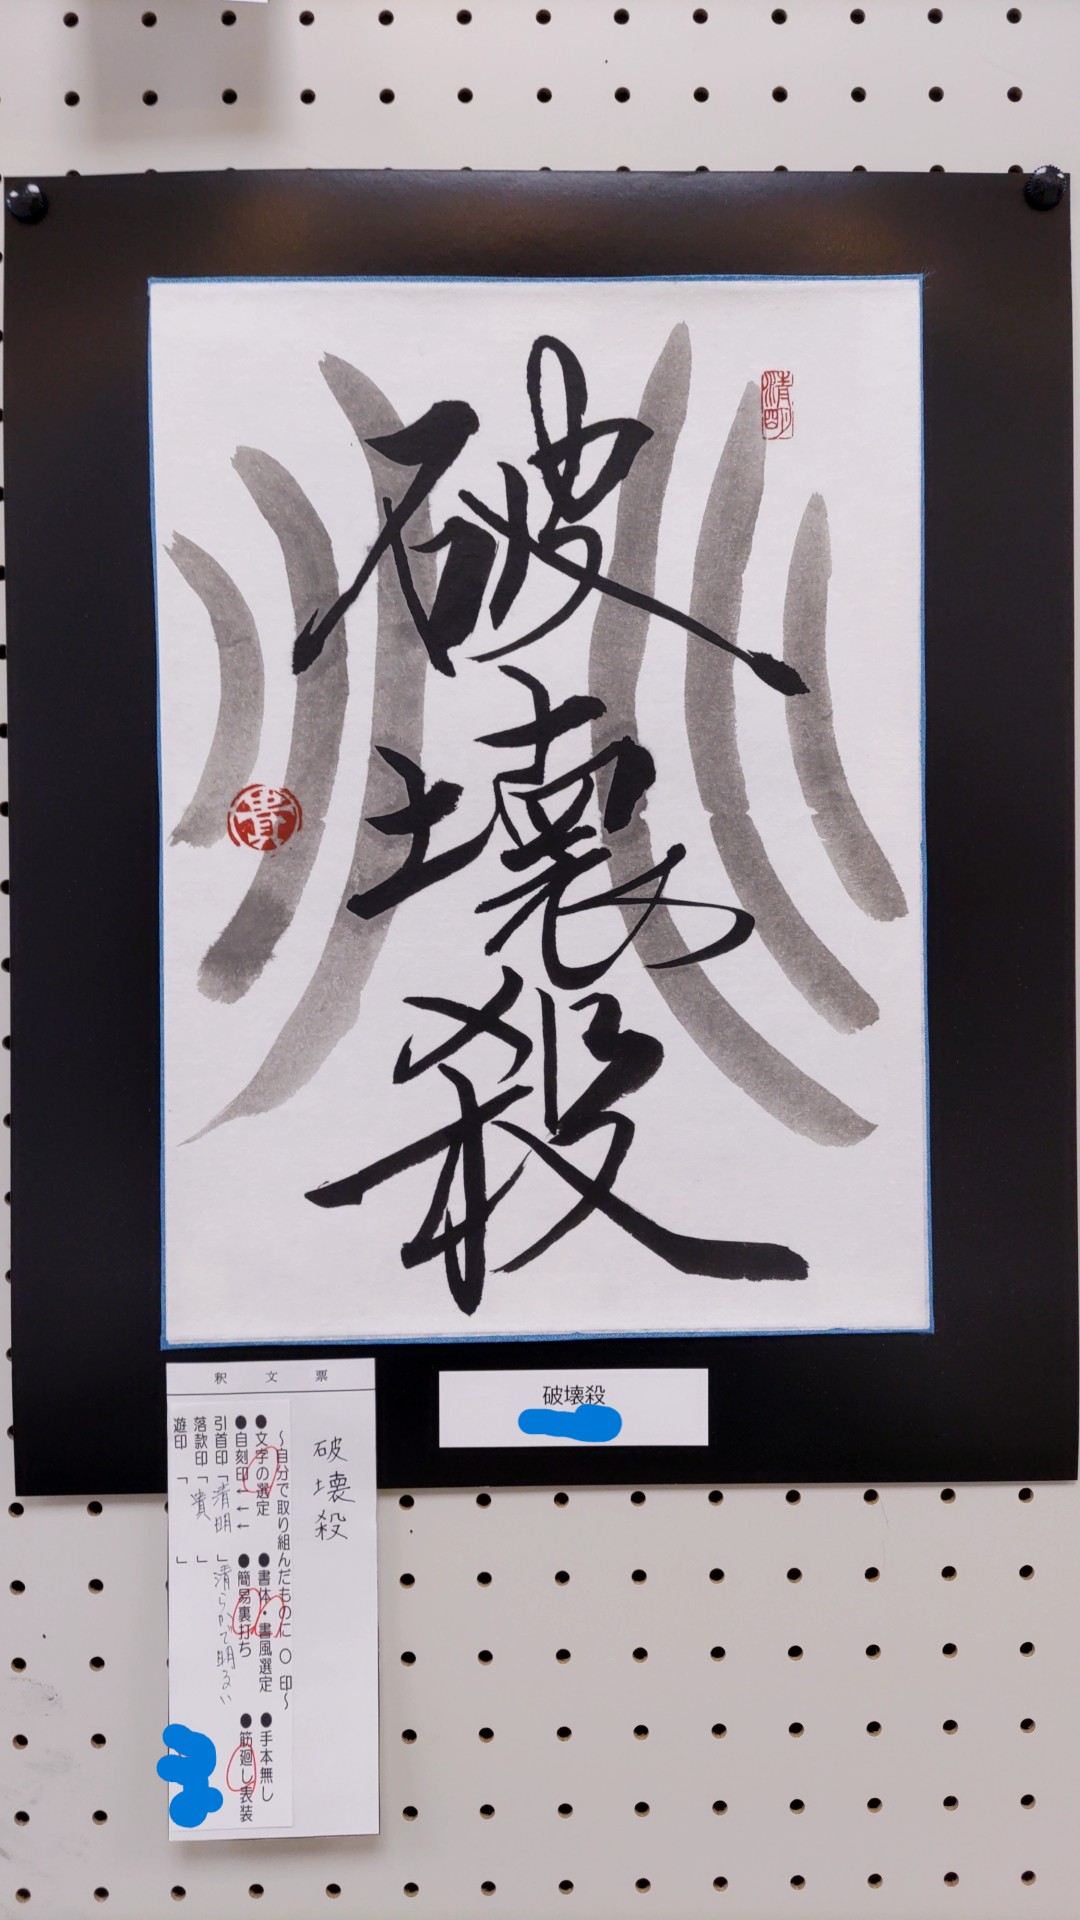 破壊殺
清明
貴
破壊殺
釈文票
破壊殺
~自分で取り組んだものに○印~
●文字の選定 ●書体・書風選定 ●手本無し
●自刻印↓↓↓ ●簡易裏打ち ●筋廻し表装
引首印「清明」清らかで明るい
落款印「貴」
遊印「 」